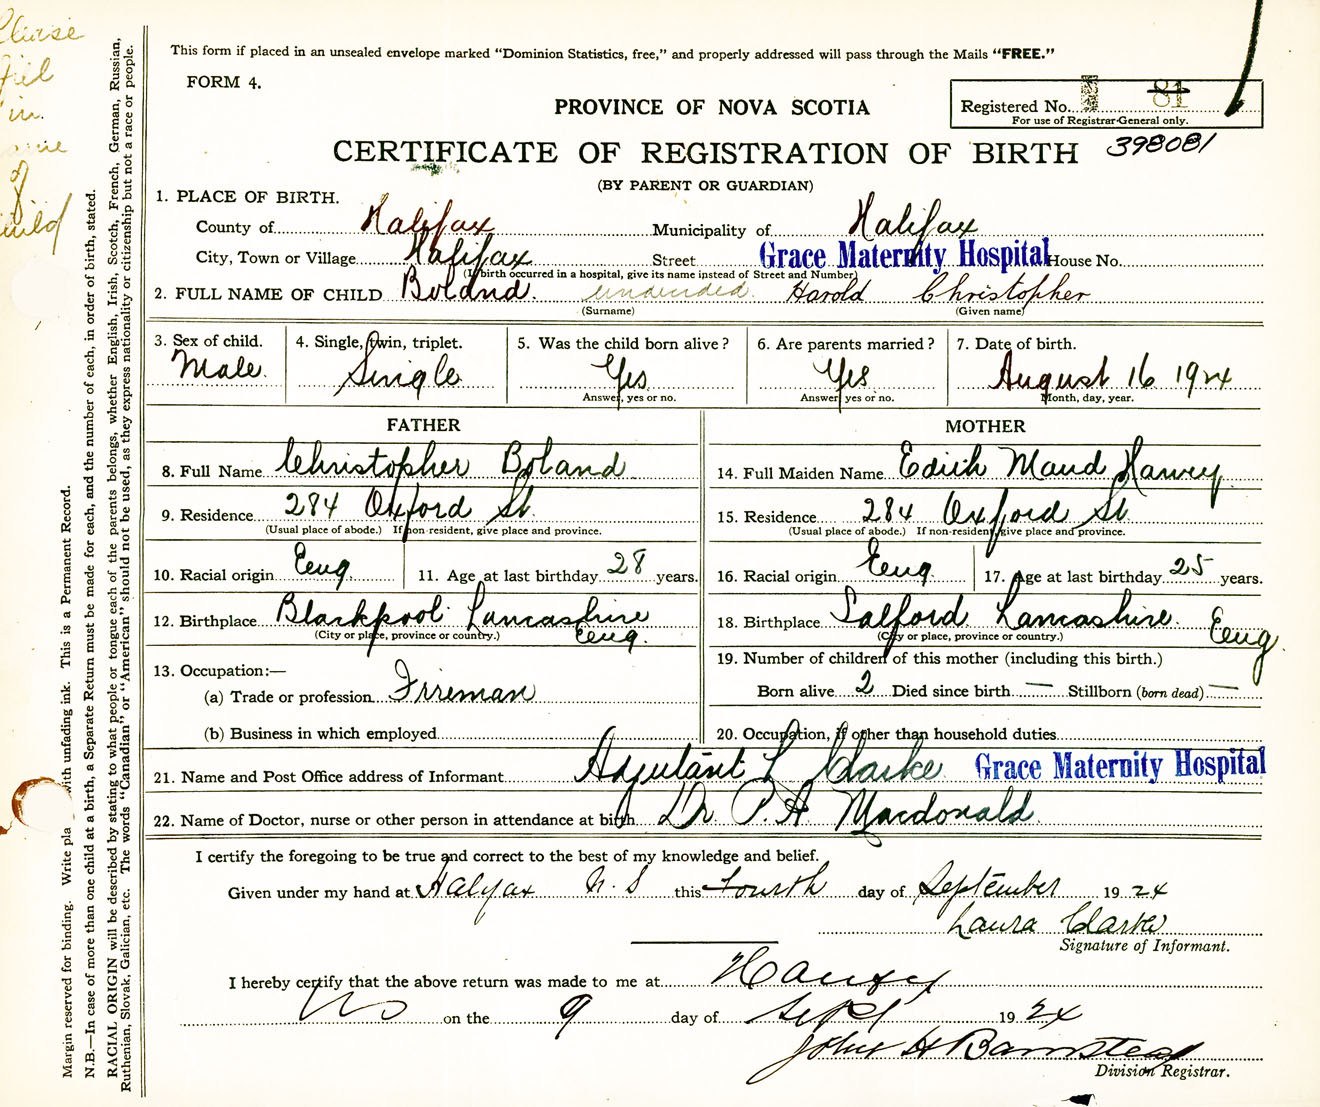 This form if placed in an unsealed envelope marked "Dominion Statistics, free," and properly addressed will pass through the Mails "FREE."
FORM 4.
Registered No. 81
For use of Registrar-General only.
PROVINCE OF NOVA SCOTIA
398081
CERTIFICATE OF REGISTRATION OF BIRTH
(BY PARENT OR GUARDIAN)
1. PLACE OF BIRTH.
County of Halifax Municipality of Halifax
City, Town or Village Halifax Street Grace Maternity Hospital House No.
(If birth occurred in a hospital, give its name instead of Street and Number)
2. FULL NAME OF CHILD Boland. undecided. Harold Christopher
(Surname) (Given name)
3. Sex of child. 4. Single, twin, triplet. 5. Was the child born alive? 6. Are parents married? 7. Date of birth.
Male. Single Yes Yes August 16 1924
Answer, yes or no. Answer yes or no. Month, day, year.
FATHER
8. Full Name Christopher Boland
9. Residence 284 Oxford St.
(Usual place of abode.) If non-resident, give place and province.
10. Racial origin Eng. 11. Age at last birthday 28 years.
12. Birthplace Blackpool Lancashire
(City or place, province or country.) Eng.
13. Occupation:—
(a) Trade or profession Fireman
(b) Business in which employed
MOTHER
14. Full Maiden Name Edith Maud Harvey
15. Residence 284 Oxford St
(Usual place of abode.) If non-resident, give place and province.
16. Racial origin Eng. 17. Age at last birthday 25 years.
18. Birthplace Salford Lancashire. Eng
(City or place, province or country.)
19. Number of children of this mother (including this birth.)
Born alive 2 Died since birth — Stillborn (born dead) —
20. Occupation, if other than household duties
21. Name and Post Office address of Informant Adjutant L Clarke Grace Maternity Hospital
22. Name of Doctor, nurse or other person in attendance at birth Dr. P. A Macdonald
I certify the foregoing to be true and correct to the best of my knowledge and belief.
Given under my hand at Halifax N. S this Fourth day of September 1924
Laura Clarke
Signature of Informant.
I hereby certify that the above return was made to me at
on the 9 day of Sept 1924
John H Barnstead
Division Registrar.
Margin reserved for binding. Write pla with unfading ink. This is a Permanent Record.
N.B.—In case of more than one child at a birth, a Separate Return must be made for each, and the number of each, in order of birth, stated.
RACIAL ORIGIN will be described by stating to what people or tongue each of the parents belongs, whether English, Irish, Scotch, French, German, Russian,
Ruthenian, Slovak, Galician, etc. The words "Canadian" or "American" should not be used, as they express nationality or citizenship but not a race or people.
in
of